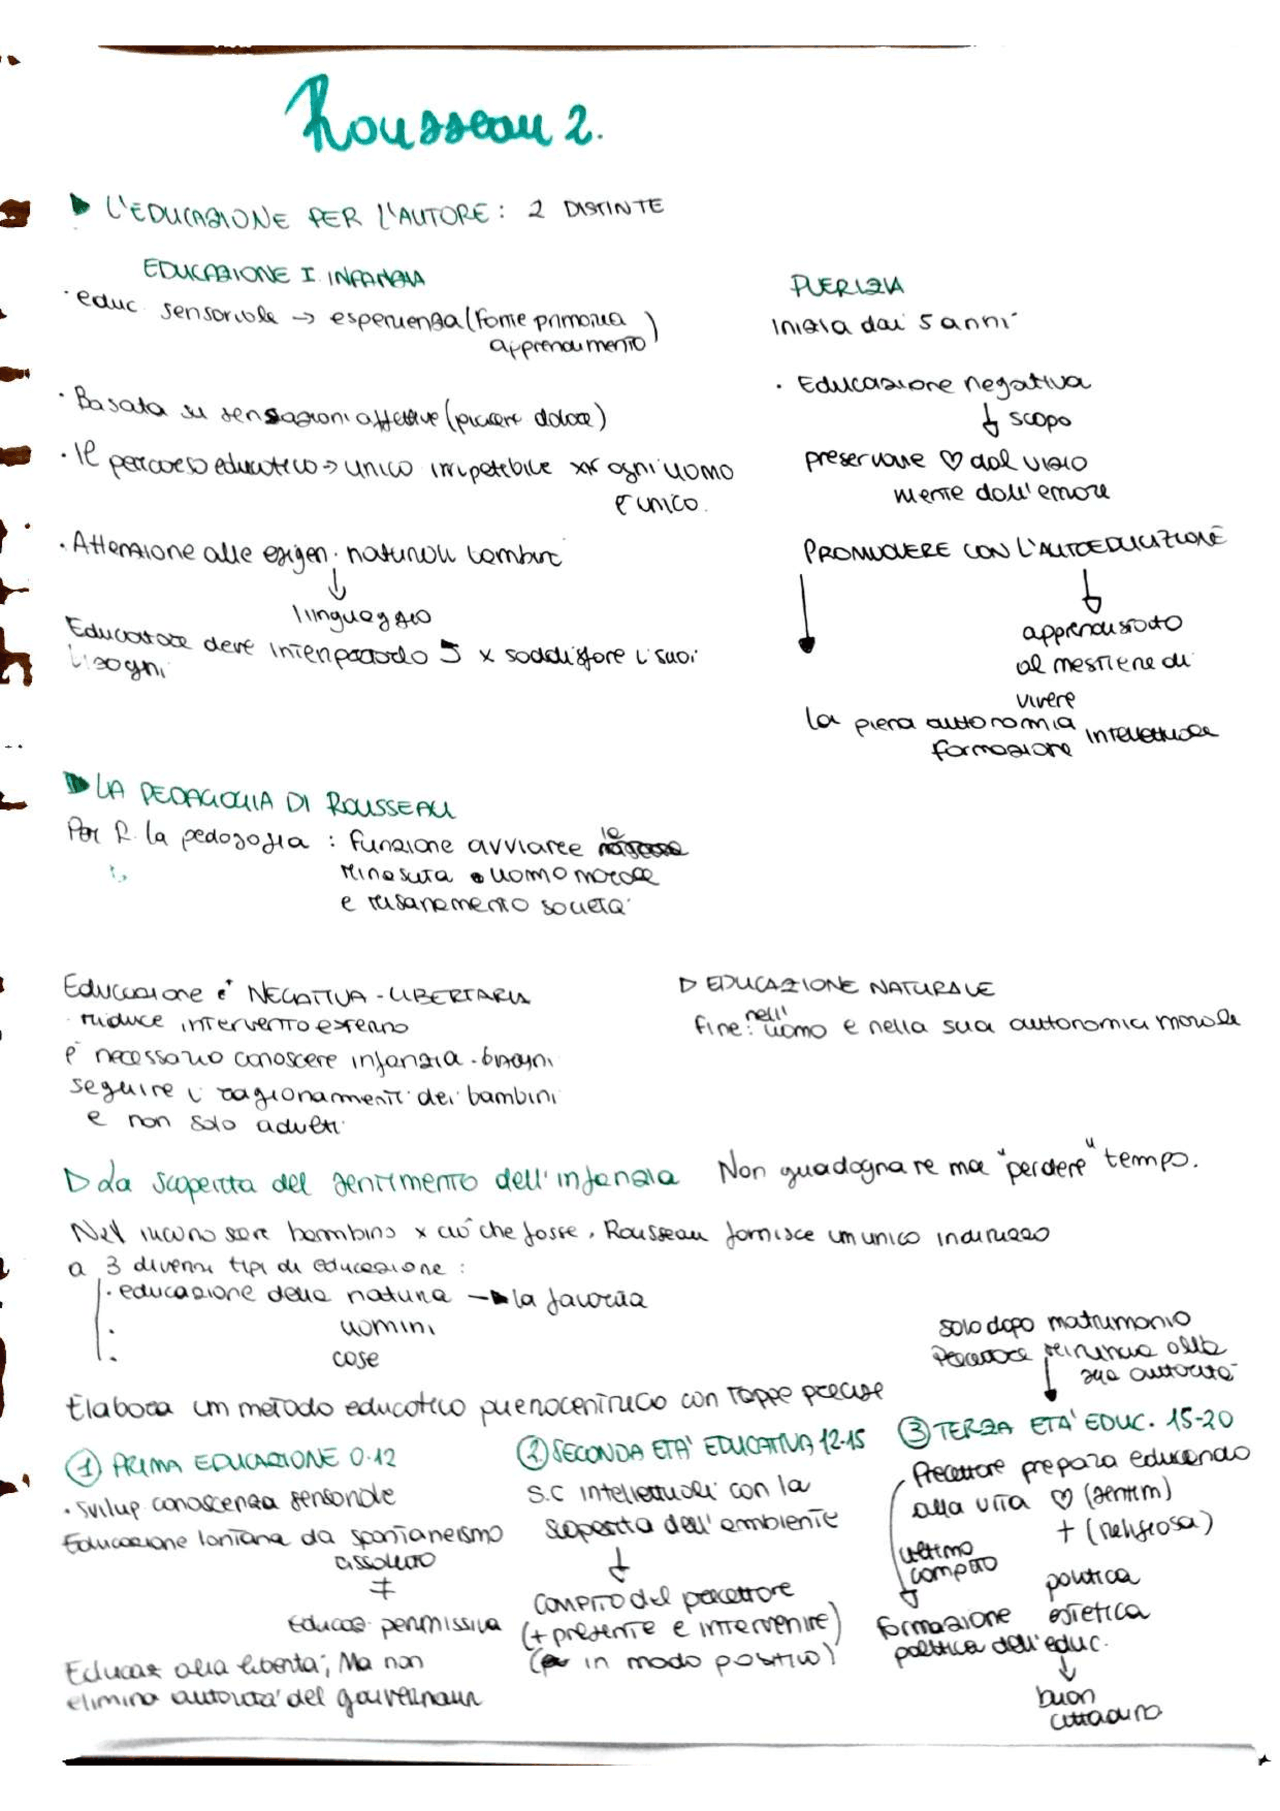 Rousseau 2.
L'EDUCAZIONE PER L'AUTORE: 2 DISTINTE
EDUCAZIONE I. INFANZIA
· educ. sensoriale → esperienza (fonte primaria
apprendimento)
· Basata su sensazioni affettive (piacere dolore)
· Il percorso educativo → unico irripetibile xk ogni uomo
è unico.
· Attenzione alle esigen. naturali bambino
↓
linguaggio
Educatore deve interpretarlo x soddisfare i suoi
bisogni
PUERIZIA
Inizia dai 5 anni
· Educazione negativa
↓ scopo
preservare ♡ dal vizio
mente dall'errore
PROMUOVERE CON L'AUTOEDUCAZIONE
↓
apprendistato
al mestiere di
vivere
la piena autonomia intellettuale
formazione
LA PEDAGOGIA DI ROUSSEAU
Per R. la pedagogia : funzione avviare la
rinascita uomo morale
e risanamento società
Educazione è NEGATIVA - LIBERTARIA
riduce intervento esterno
è necessario conoscere infanzia - bisogni
seguire i ragionamenti dei bambini
e non solo adulti
▷ EDUCAZIONE NATURALE
fine: nell' uomo e nella sua autonomia morale
▷ La scoperta del sentimento dell'infanzia Non guadagnare ma "perdere" tempo.
bambino x ciò che fosse, Rousseau fornisce un unico indirizzo
a 3 diversi tipi di educazione :
· educazione della natura → la favorita
· uomini
· cose
Elabora un metodo educativo puerocentrico con tappe precise
① PRIMA EDUCAZIONE 0-12
· Svilup conoscenza sensoriale
Educazione lontana da spontaneismo
assoluto
≠
Educaz. permissiva
Educaz alla libertà; Ma non
elimina autorità del
② SECONDA ETA' EDUCATIVA 12-15
S.C intellettuali con la
scoperta dell'ambiente
↓
COMPITO del precettore
(+ presente e intervenire)
( in modo positivo)
solo dopo matrimonio
Precettore rinuncia alla
sua autorità
↓
③ TERZA ETA' EDUC. 15-20
Precettore prepara educando
alla vita ♡ (sentim)
+ (religiosa)
politica
estetica
ultimo
compito
formazione
politica dell'educ.
↓
buon
cittadino